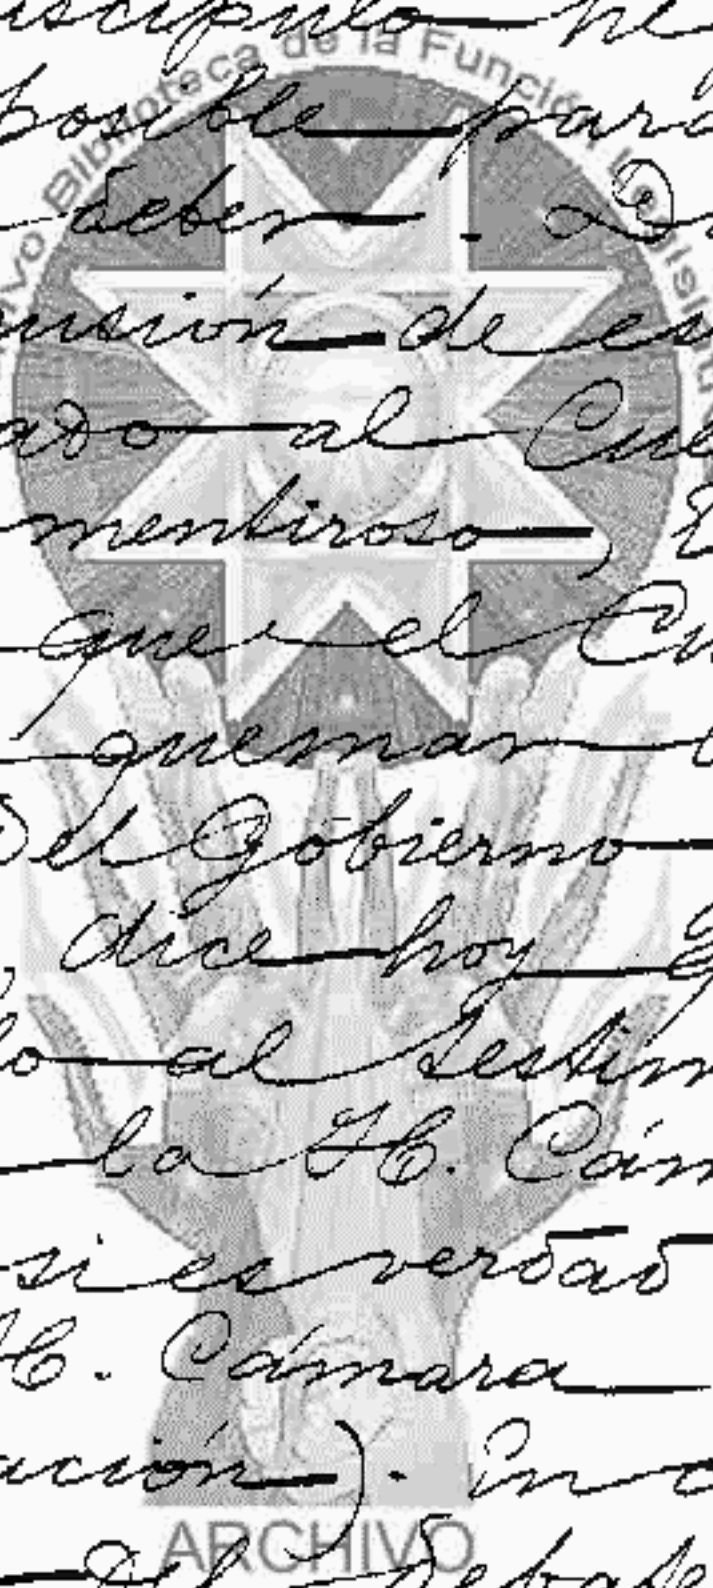 Archivo Biblioteca de la Función Legislativa
iscípulo he
posible para
deber. D
cusión de es
ado al Cue
mentiroso, E
que el Cu
quemar
Del Gobierno
dice hoy q
lo al testim
la H. Cám
si es verdad
H. Cámara
ación). In
Del debate
ARCHIVO